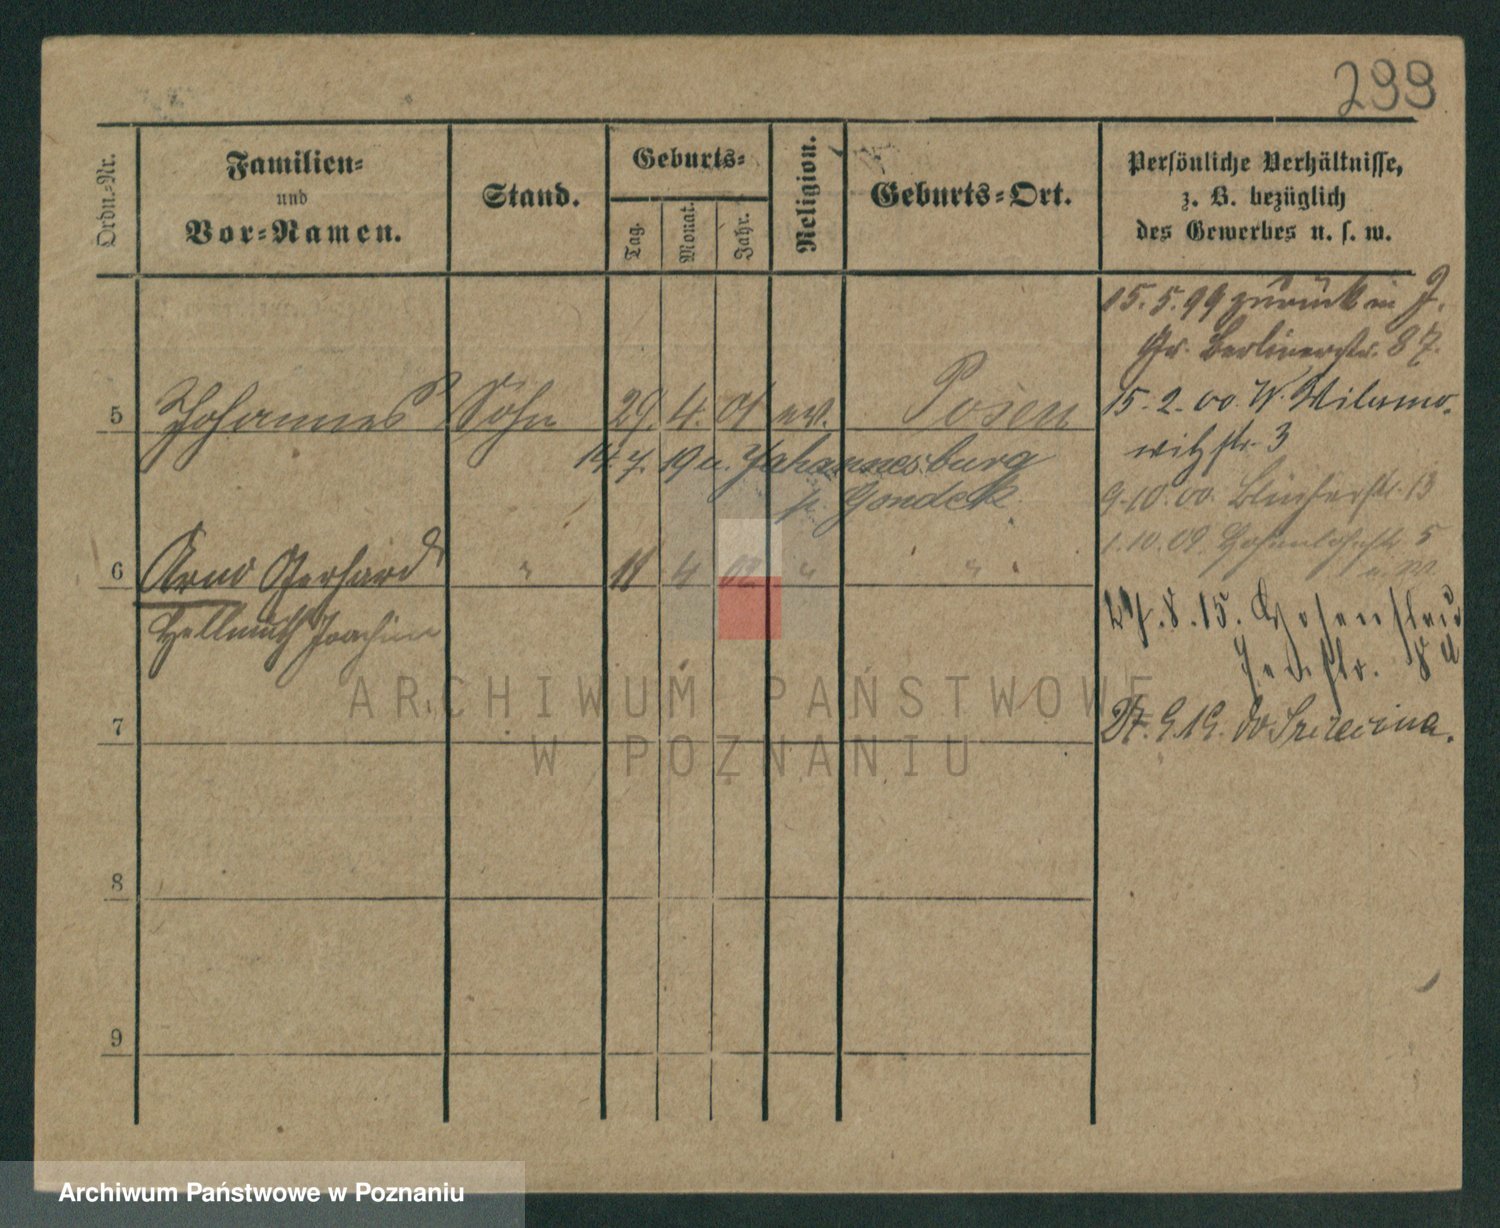 299
Ordn.-Nr.
Familien-
und
Vor-Namen.
Stand.
Geburts-
Tag.
Monat.
Jahr.
Religion.
Geburts-Ort.
Persönliche Verhältnisse,
z. B. bezüglich
des Gewerbes u. s. w.
15.5.99 zurück in J.
Gr. Berlinerstr. 87.
5 Johannes Sohn 29. 4. 01 ev. Posen
15.2.00. W. Wilamo-
witzstr. 3
14.7.19 n. Johannesburg
p. Gondek
9.10.00. Blücherstr. 13
1.10.09. Hohenlohestr. 5
6 Arno Gerhard " 11 4 02 " "
Hellmuth Joachim
27.8.15.
str. 8
7
27.9.19. do
8
9
ARCHIWUM PAŃSTWOWE
W POZNANIU
Archiwum Państwowe w Poznaniu